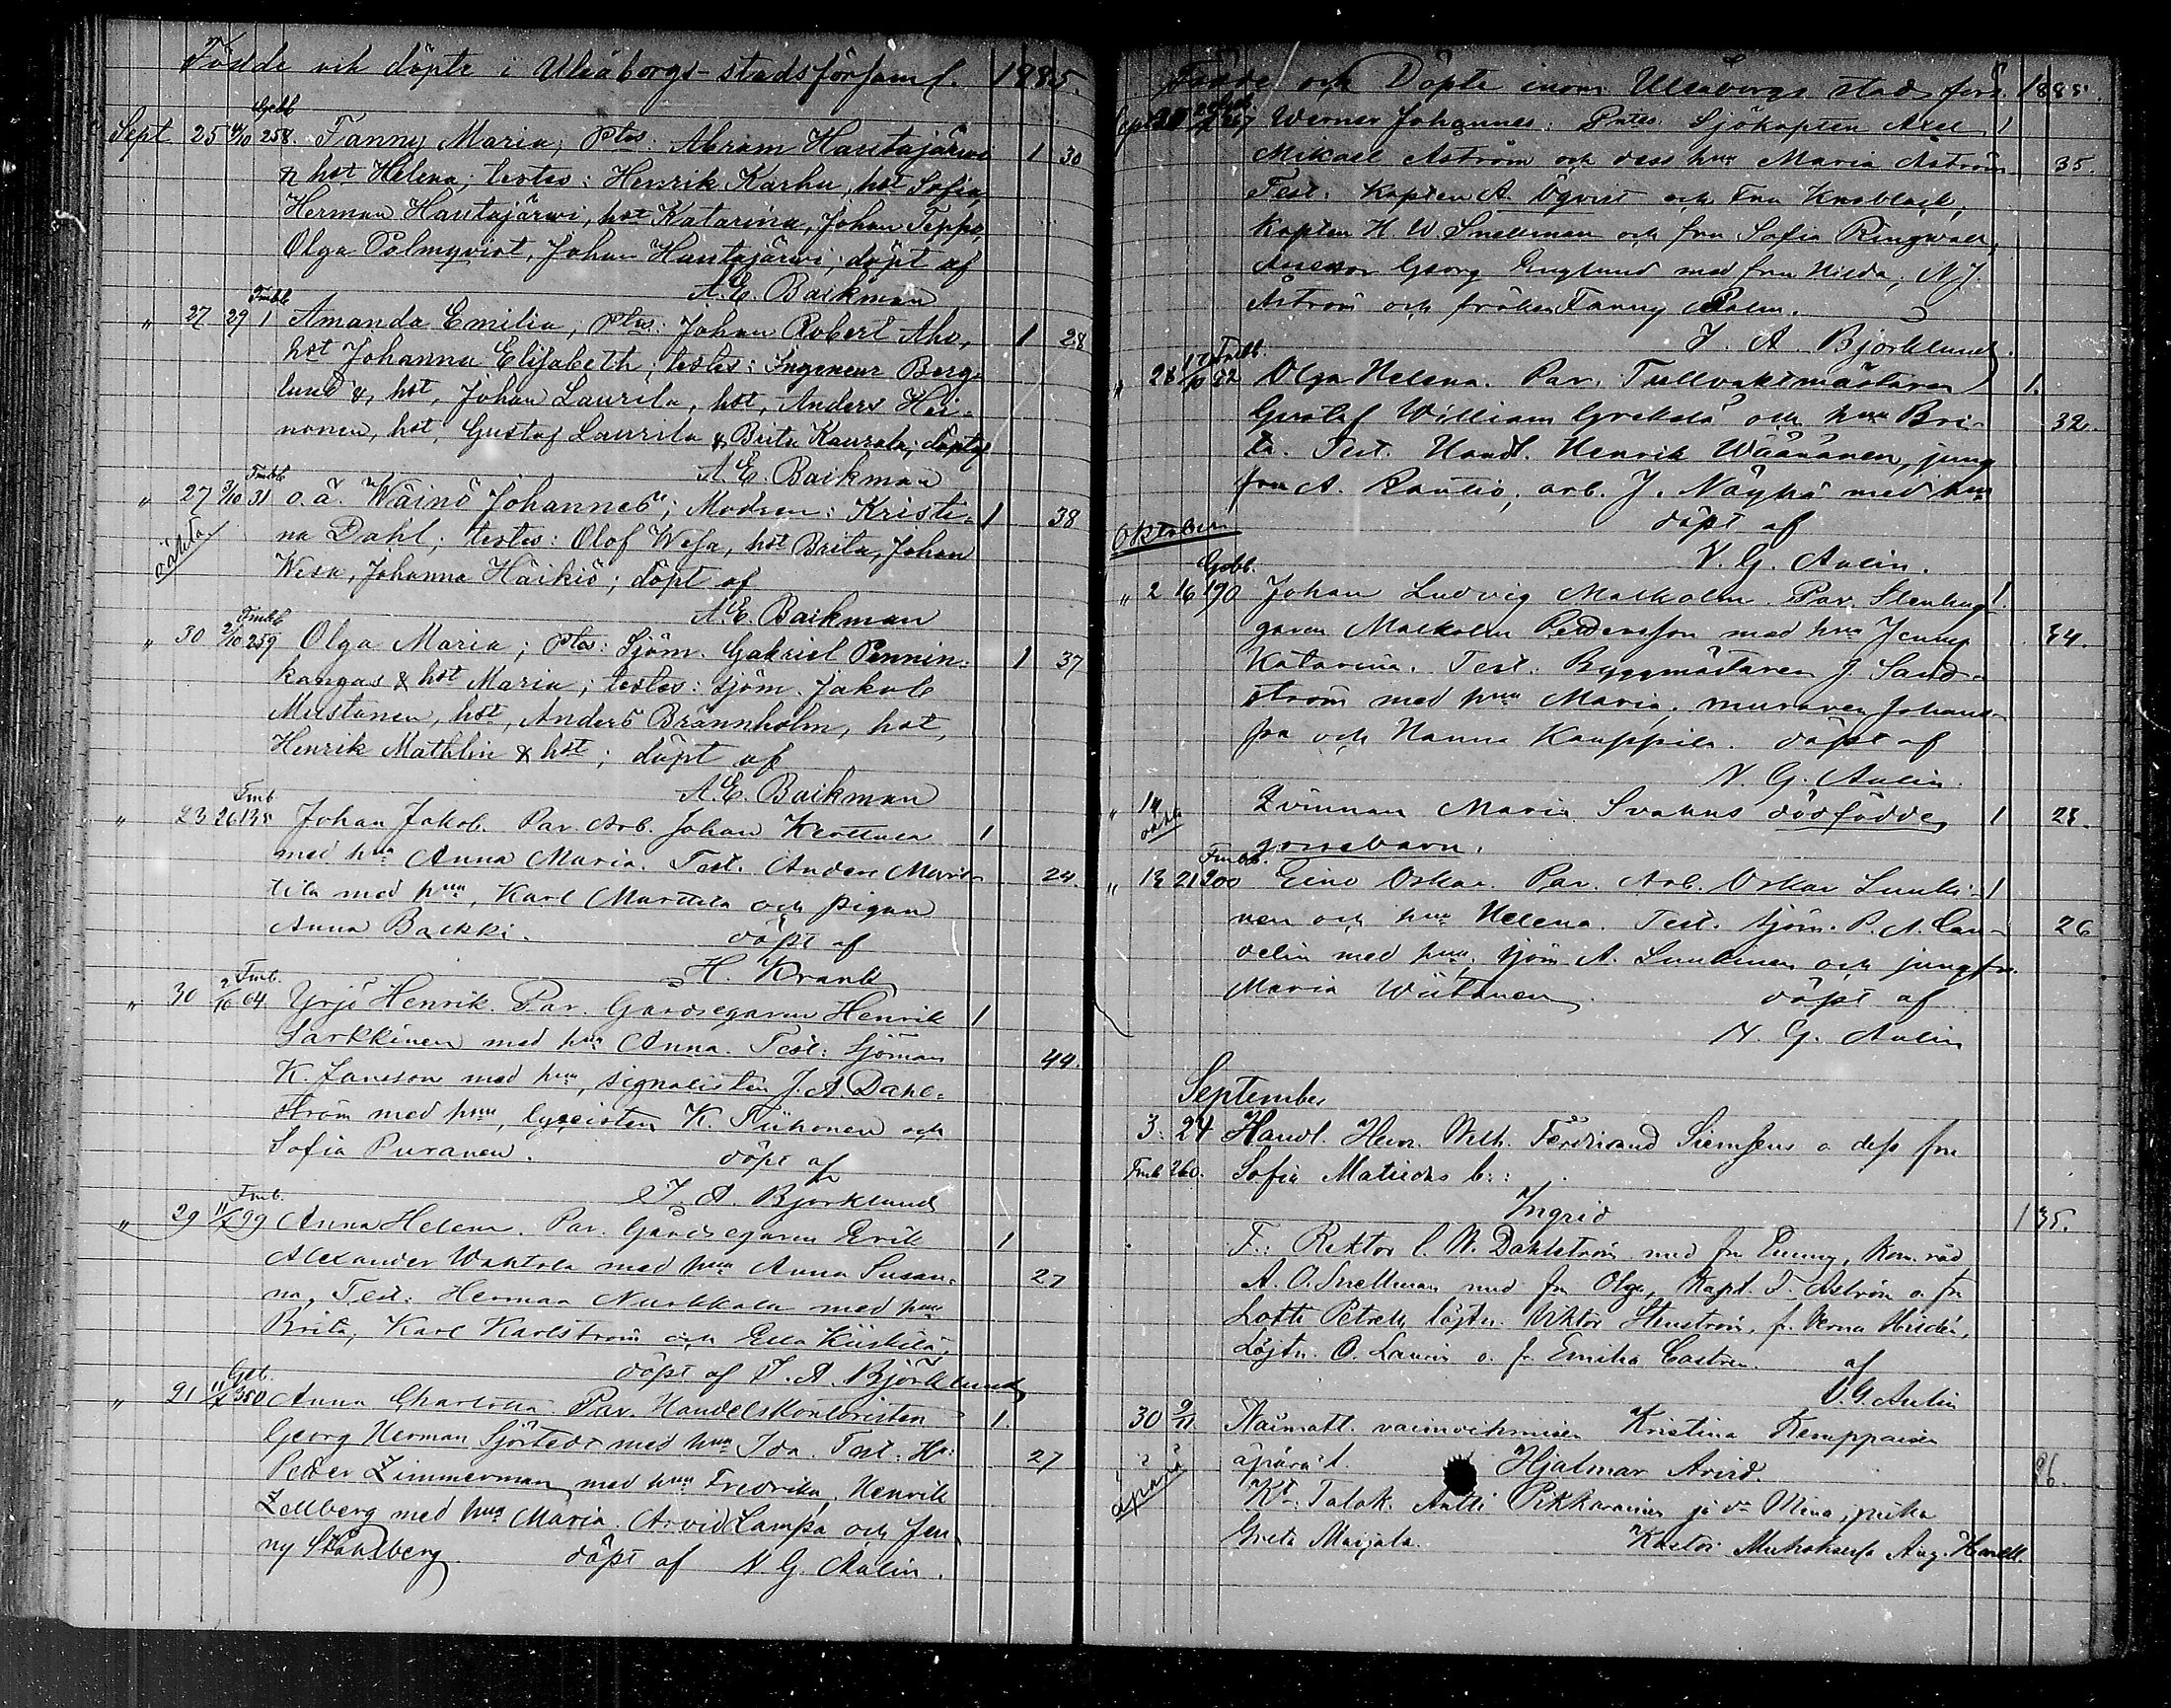 Födde och döpte i Uleåborgs-stadsförsaml. 1885.
Gvbb
Sept 25 4/10 258. Fanny Maria; Ptes: Abram Hautajärwi 1 30
& hst Helena; testes: Henrik Karhu, hst Sofia,
Herman Hautajärwi, hst Katarina, Johan Teppo,
Olga Palmqvist, Johan Hautajärwi; döpt af
A. E. Baikman
Fmbb
" 27 29 1 Amanda Emilia; Ptes: Johan Robert Aho, 1 28
hst Johanna Elisabeth; testes: Ingeneur Berg-
lund &, hst, Johan Laurila, hst, Anders Hei-
nonen, hst, Gustaf Laurila & Brita Kaurala; döpt af
A. E. Baikman
Fmbb
" 27 3/10 31 o.ä. Wäinö Johannes; Modren: Kristi- 1 38
oäkta na Dahl; testes: Olof Wesa, hst Brita, Johan
Wesa, Johanna Häikiö; döpt af
A. E. Baikman
Fmbb
" 30 2/10 259 Olga Maria; Ptes: Sjöm. Gabriel Pennin- 1 37
kangas & hst Maria; testes: sjöm. Jakob
Mustonen, hst, Anders Brännholm, hst,
Henrik Mathlin & hst; döpt af
A. E. Baikman
Fmb
" 23 26 135 Johan Jakob. Par. Arb. Johan Kerttula 1
med hu Anna Maria. Test. Anders Mart- 24.
tila med hu, Karl Marttila och pigan
Anna Backki. döpt af
H. Krank
Fmb.
" 30 2/10 64 Yrjö Henrik. Par. Gårdsegaren Henrik 1
Sarkkinen med hu Anna. Test: Sjöman 44.
K. Janson med hu, signalisten J. A. Dahl-
ström med hu, lyceisten K. Tiihonen och
Sofia Puranen. döpt af
J. A. Björklund
Fmb.
" 29 11/X 99 Anna Helena. Par. Gårdsegaren Erik 1
Alexander Wahtola med hu Anna Susan- 27
na. Test: Herman Nurkkala med hu
Brita, Karl Karlström och Elsa Kiiskilä.
döpt af J. A. Björklund
Gbb.
" 21 11/X 350 Anna Charlotta Par. Handelskontoristen 1.
Georg Herman Sjöstedt med hu Ida. Test. Ha: 27
Peder Zimmerman med hu Fredrika, Henrik
Zellberg med hu Maria. Arvid Lampa och Jen-
ny Ståhlberg. döpt af N. G. Aulin.
Födde och Döpte inom Uleåborgs stads förs. 1885.
Werner Johannes: Ptes. Sjökapten Axel 1
Mikael Åström och dess hu Maria Åström 35.
Test. Kapten A. Öqvist och Fru Knoblock,
Kapten H. W. Snellman och fru Sofia Ringwall,
Assessor Georg Englund med fru Hilda, N. J.
Åström och fröken Fanny Palm.
J. A. Björklund.
" 28 Olga Helena. Par. Tullvaktmästaren 1.
Gustaf William Grekelä och hu Bri- 32.
ta. Test. Handl. Henrik Wäänänen, jung
fru A. Rautio, arb. J. Näyhä med hu
döpt af
Oktober
N. G. Aulin.
Gvbb.
" 2 16 190 Johan Ludvig Malkolm. Par Stenhug- 1.
garen Malkolm Pedersson med hu Jenny 34.
Katarina. Test. Byggmästaren J. Sand-
ström med hu Maria, muraren Johans-
son och Hanna Kauppila. döpt af
N. G. Aulin.
" 14 Qvinnan Maria Svahns dödfödde 1 28.
oäkta gossebarn.
Fmbb.
" 13 21 200 Eino Oskar. Par. Arb. Oskar Luuki- 1
nen och hu Helena. Test. Sjöm. P. A. Can- 26
delin med hu, sjöm A. Luukinen och jungfru
Maria Wiitanen. döpt af
N. G. Aulin
September
3. 24 Handl. Henr. Wilh. Ferdinand Siemsens o. dess fru
Fmb 260. Sofia Matildas b.:
Ingrid 1 35.
F.: Rektor C. W. Dahlström med fru Emmy, Kom. råd
A. O. Snellman med fru Olga, Kapt. J. Åström o. fru
Lotti Petrell, löjtn. Viktor Stenström, f. Verna Hisdén,
Löjtn. O. Laurin o. fr. Emilia Castrén. af
N. G. Aulin
30 9/11. Naimatt. vaimoihmisen Kristina Kemppaisen
äpärä äpärä l. Hjalmar Arvid. 26.
Kr. Talok. Antti Pikkarainen ja v. Mina, piika
Greta Maijala. Kastoi Muhoksessa Aug. Havell.